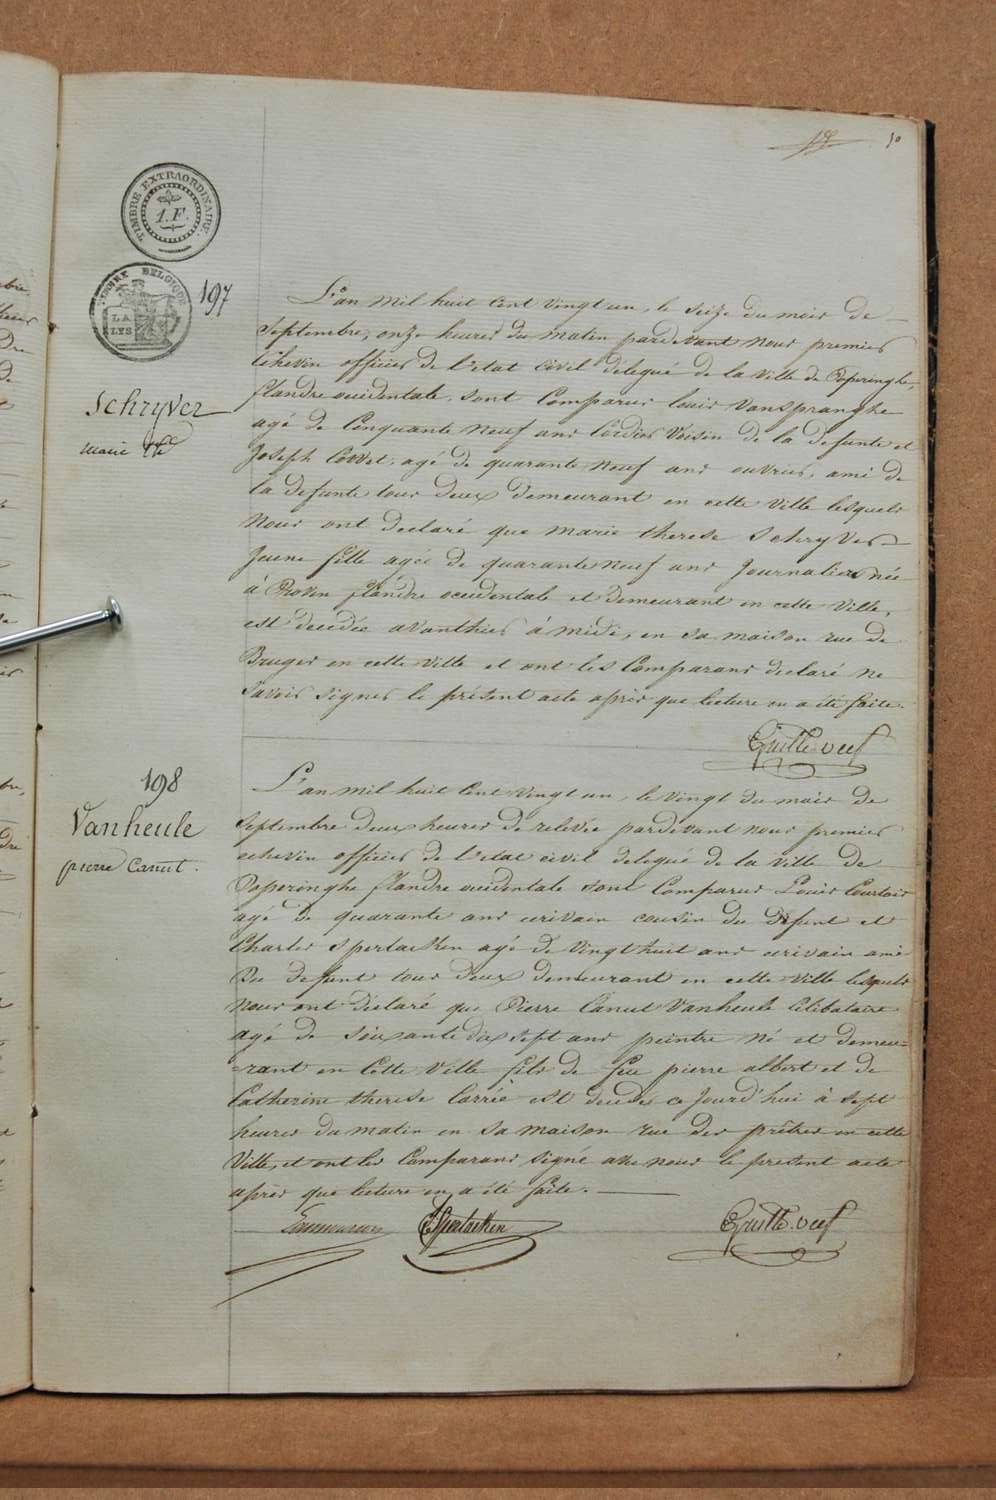 50
TIMBRE EXTRAORDINAIRE.
1.F.
TIMBRE BELGIQUE
LA
LYS
197
Schryver
marie Th
L'an mil huit cent vingt un, le seize du mois de
Septembre, onze heures du matin pardevant nous premier
Echevin officier de l'etat civil délegué de la ville de Poperinghe,
flandre occidentale, sont comparus louis Vanspranghe
agé de Cinquante neuf ans Cordier Voisin de la defunte et
Joseph Cowet, agé de quarante neuf ans ouvrier, ami de
la defunte tous deux demeurant en cette ville lesquels
Nous ont declaré que marie therese Schryver
Jeune fille agée de quarante neuf ans Journaliere née
à Proven flandre occidentale et demeurant en cette ville,
est decedée avanthier à midi, en sa maison rue de
Bruges en cette ville et ont les Comparans declaré ne
Savoir signer le présent acte après que lecture en a été faite.
198
Vanheule
pierre Canut.
L'an mil huit cent vingt un, le vingt du mois de
Septembre deux heures de relevée pardevant nous premier
echevin officier de l'etat civil delegué de la ville de
Poperinghe flandre occidentale sont Comparus Louis Courtois
agé de quarante ans ecrivain cousin du defunt et
Charles Spertaelken agé de vingt huit ans ecrivain ami
Du defunt tous deux demeurant en cette ville lesquels
Nous ont déclaré que Pierre Canut Vanheule Celibataire
agé de soixante dix sept ans peintre né et demeu=
=rant en Cette Ville fils de feu pierre albert et de
Catherine therese Carrée est decedé ce Jourd'hui à sept
heures du matin en sa maison rue des prêtres en cette
Ville, et ont les Comparans signé avec nous le present acte
après que lecture en a été faite.